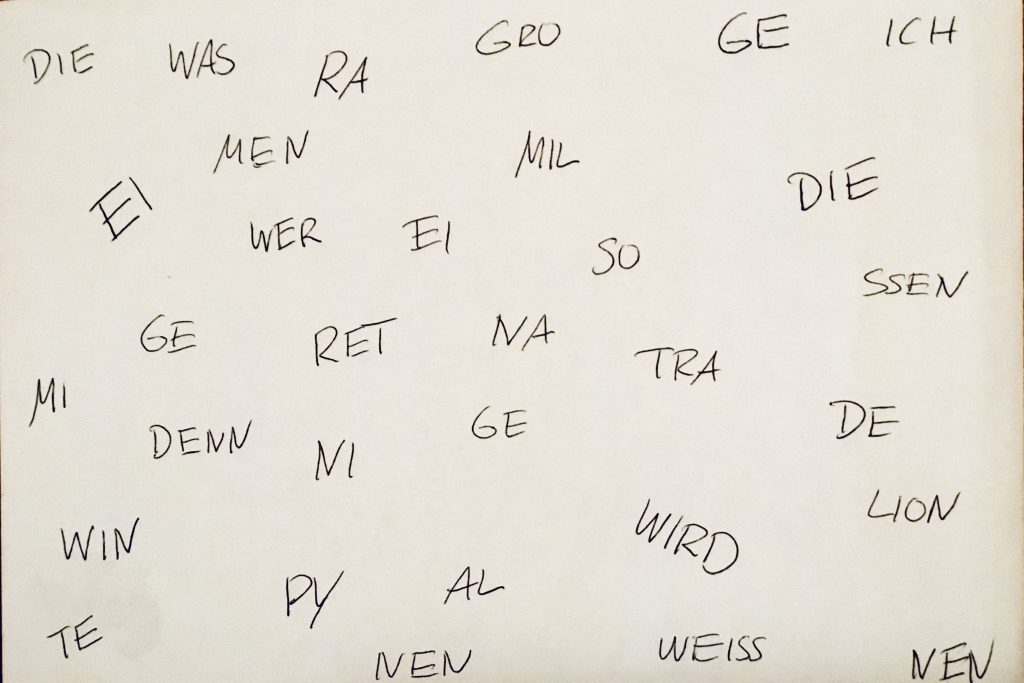 DIE WAS RA GRO GE ICH
MEN MIL
EI DIE
WER EI SO
SSEN
GE RET NA
MI TRA
DENN NI GE DE
LION
WIN WIRD
PY AL
TE NEN WEISS NEN